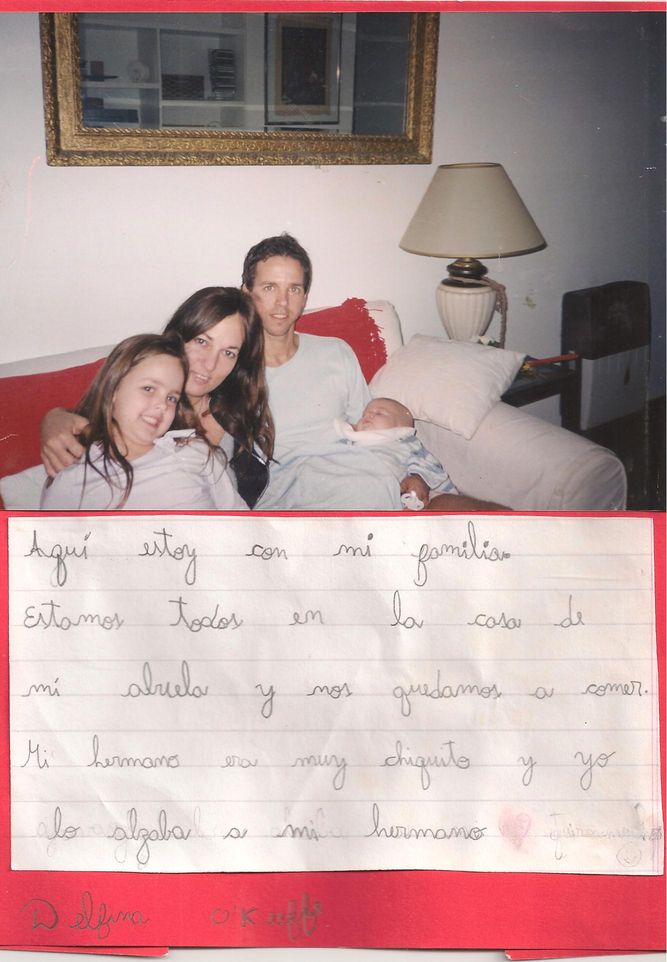 Aquí estoy con mi familia.
Estamos todos en la casa de
mi abuela y nos quedamos a comer.
Mi hermano era muy chiquito y yo
lo alzaba a mi hermano
Delfina O'Keeffe